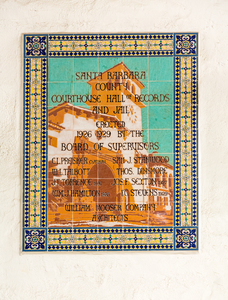 SANTA BARBARA
COUNTY
COURTHOUSE HALL OF RECORDS
AND JAIL
ERECTED
1926 1929 BY THE
BOARD OF SUPERVISORS
C.L. PREISKER SAM J. STANWOOD
W.J. TALBOTT THOS. DINSMORE
J. TORRENCE JOS. F. SEXTON
WM. HAMILTON STEVENS
WILLIAM MOOSER COMPANY
ARCHITECTS